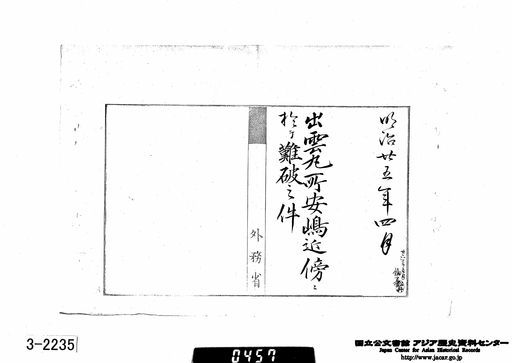 明治廿五年四月
出雲丸所安嶋近傍ニ
於テ難破之件
外務省
3-2235
0457
国立公文書館 アジア歴史資料センター
Japan Center for Asian Historical Records
http://www.jacar.go.jp